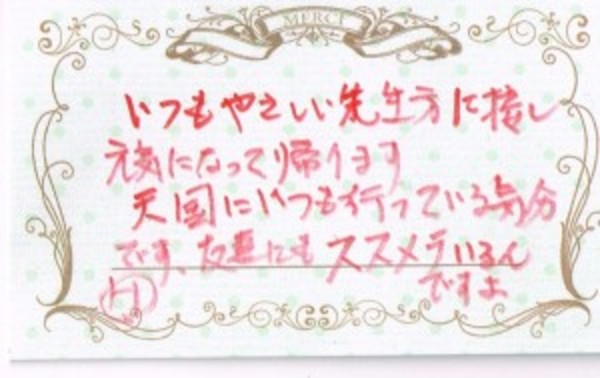 MERCI
いつもやさしい先生方に接し
元気になって帰ります
天国にいつも行っている気分
です、友達にもススメテいるん
ですよ